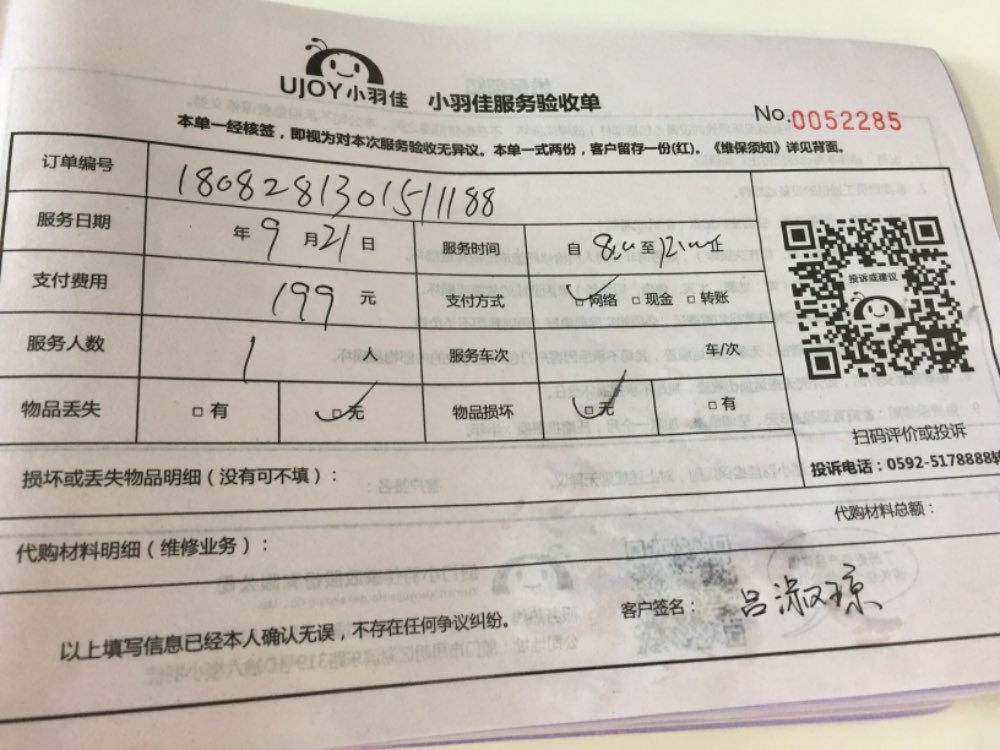 UJOY小羽佳 小羽佳服务验收单
No.0052285
本单一经核签，即视为对本次服务验收无异议。本单一式两份，客户留存一份(红)。《维保须知》详见背面。
订单编号 1808281301511188
服务日期 年 9 月 21 日 服务时间 自 8:00 至 12:00 止
支付费用 199 元 支付方式 □网络 □现金 □转账
服务人数 1 人 服务车次 车/次
物品丢失 □有 □无 物品损坏 □无 □有
投诉或建议
扫码评价或投诉
投诉电话：0592-5178888转
损坏或丢失物品明细（没有可不填）：
代购材料明细（维修业务）： 代购材料总额：
以上填写信息已经本人确认无误，不存在任何争议纠纷。 客户签名： 吕淑琼